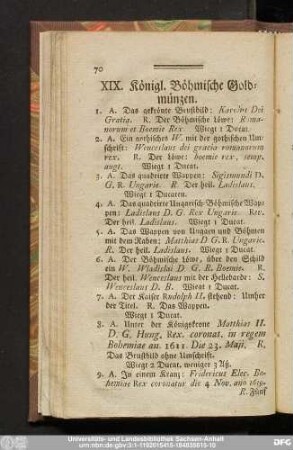 70
XIX. Königl. Böhmische Gold-
münzen.
1. A. Das gekrönte Brustbild: Karolus Dei
Gratia. R. Der Böhmische Löwe: Roma-
norum et Boemie Rex. Wiegt 1 Ducat.
2. A. Ein gothisches W. mit der gothischen Um-
schrift: Wenceslaus dei gracia romanorum
rex. R. Der Löwe: boemie rex, semp.
augt. Wiegt 1 Ducat.
3. A. Das quadrirte Wappen: Sigismundi D.
G. R. Ungarie. R. Der heil. Ladislaus.
Wiegt 1 Ducaten.
4. A. Das quadrirte Ungarisch-Böhmische Wap-
pen: Ladislaus D. G. Rex Ungarie. Rex.
Der heil. Ladislaus. Wiegt 1 Ducat.
5. A. Das Wappen von Ungarn und Böhmen
mit dem Raben: Matthias D G. R. Ungarie.
R. Der heil. Ladislaus. Wiegt 1 Ducat.
6. A. Der Böhmische Löwe, über den Schild
ein W. Wladislai D G. R. Boemie. R.
Der heil. Wenceslaus mit der Hellebarde: S.
Wenceslaus D. B. Wiegt 1 Ducat.
7. A. Der Kaiser Rudolph II. stehend: Umher
der Titel. R. Das Wappen.
Wiegt 1 Ducat.
8. A. Unter der Königskrone Matthias II.
D. G. Hung. Rex. coronat. in regem
Bohemiae an. 1611. Die 23. Maji. R.
Das Brustbild ohne Umschrift.
Wiegt 2 Ducat. weniger 3 Aß.
9. A. In einem Kranz: Fridericus Elec. Bo-
hemiae Rex coronatus die 4 Nov. ano 1619.
R. Fünf
Universitäts- und Landesbibliothek Sachsen-Anhalt
urn:nbn:de:gbv:3:1-1192015415-184635815-10